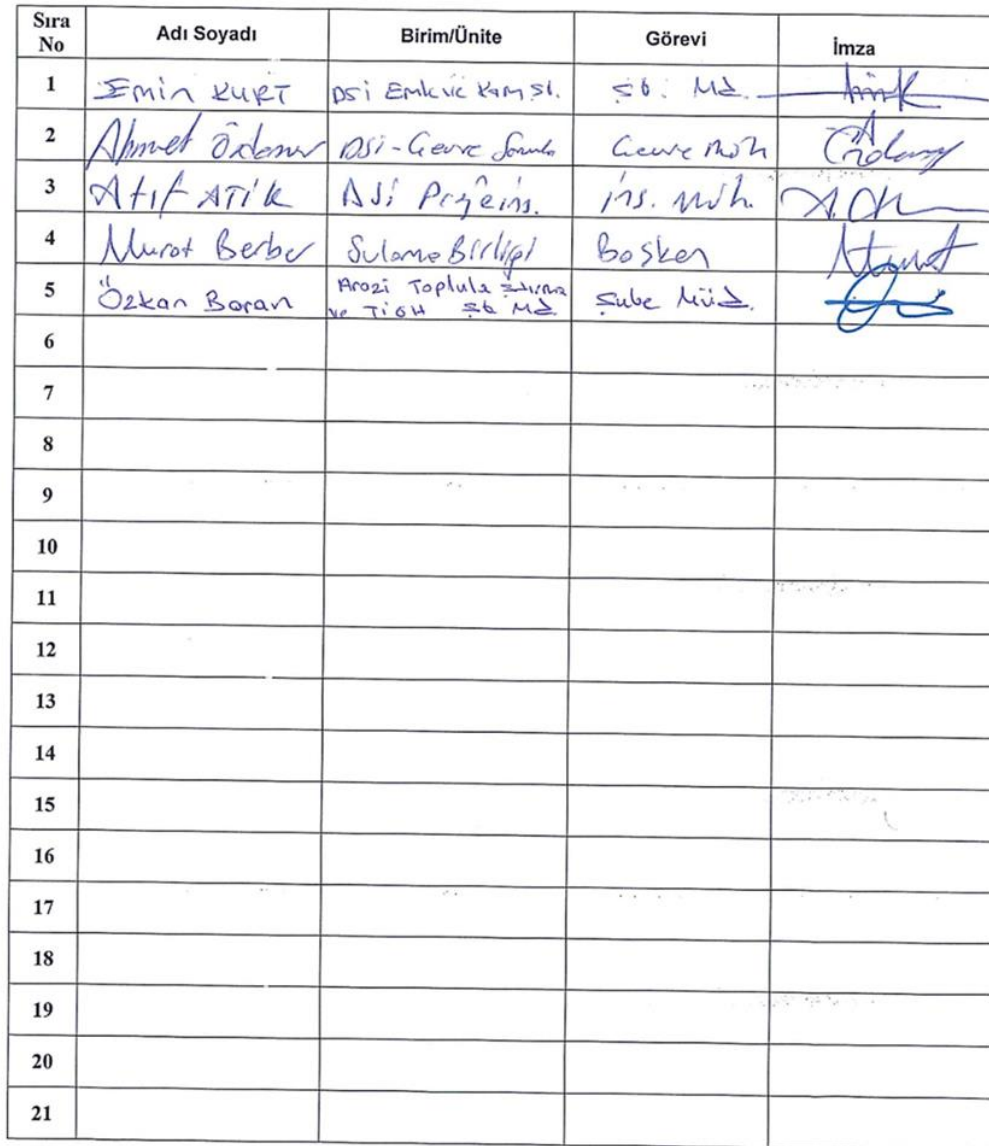 Sıra No Adı Soyadı Birim/Ünite Görevi İmza
1 Emin KURT DSİ Emlk ve Kam Şb. Şb. Md.
2 Ahmet Özdemir DSİ-Çevre Çevre Müh
3 Atıf ATİK DSİ Proje inş. inş. Müh.
4 Murat Berber Sulama Birliği Başkan
5 Özkan Boran Arazi Toplulaştırma
ve TİGH Şb Md Şube Müd.
6
7
8
9
10
11
12
13
14
15
16
17
18
19
20
21